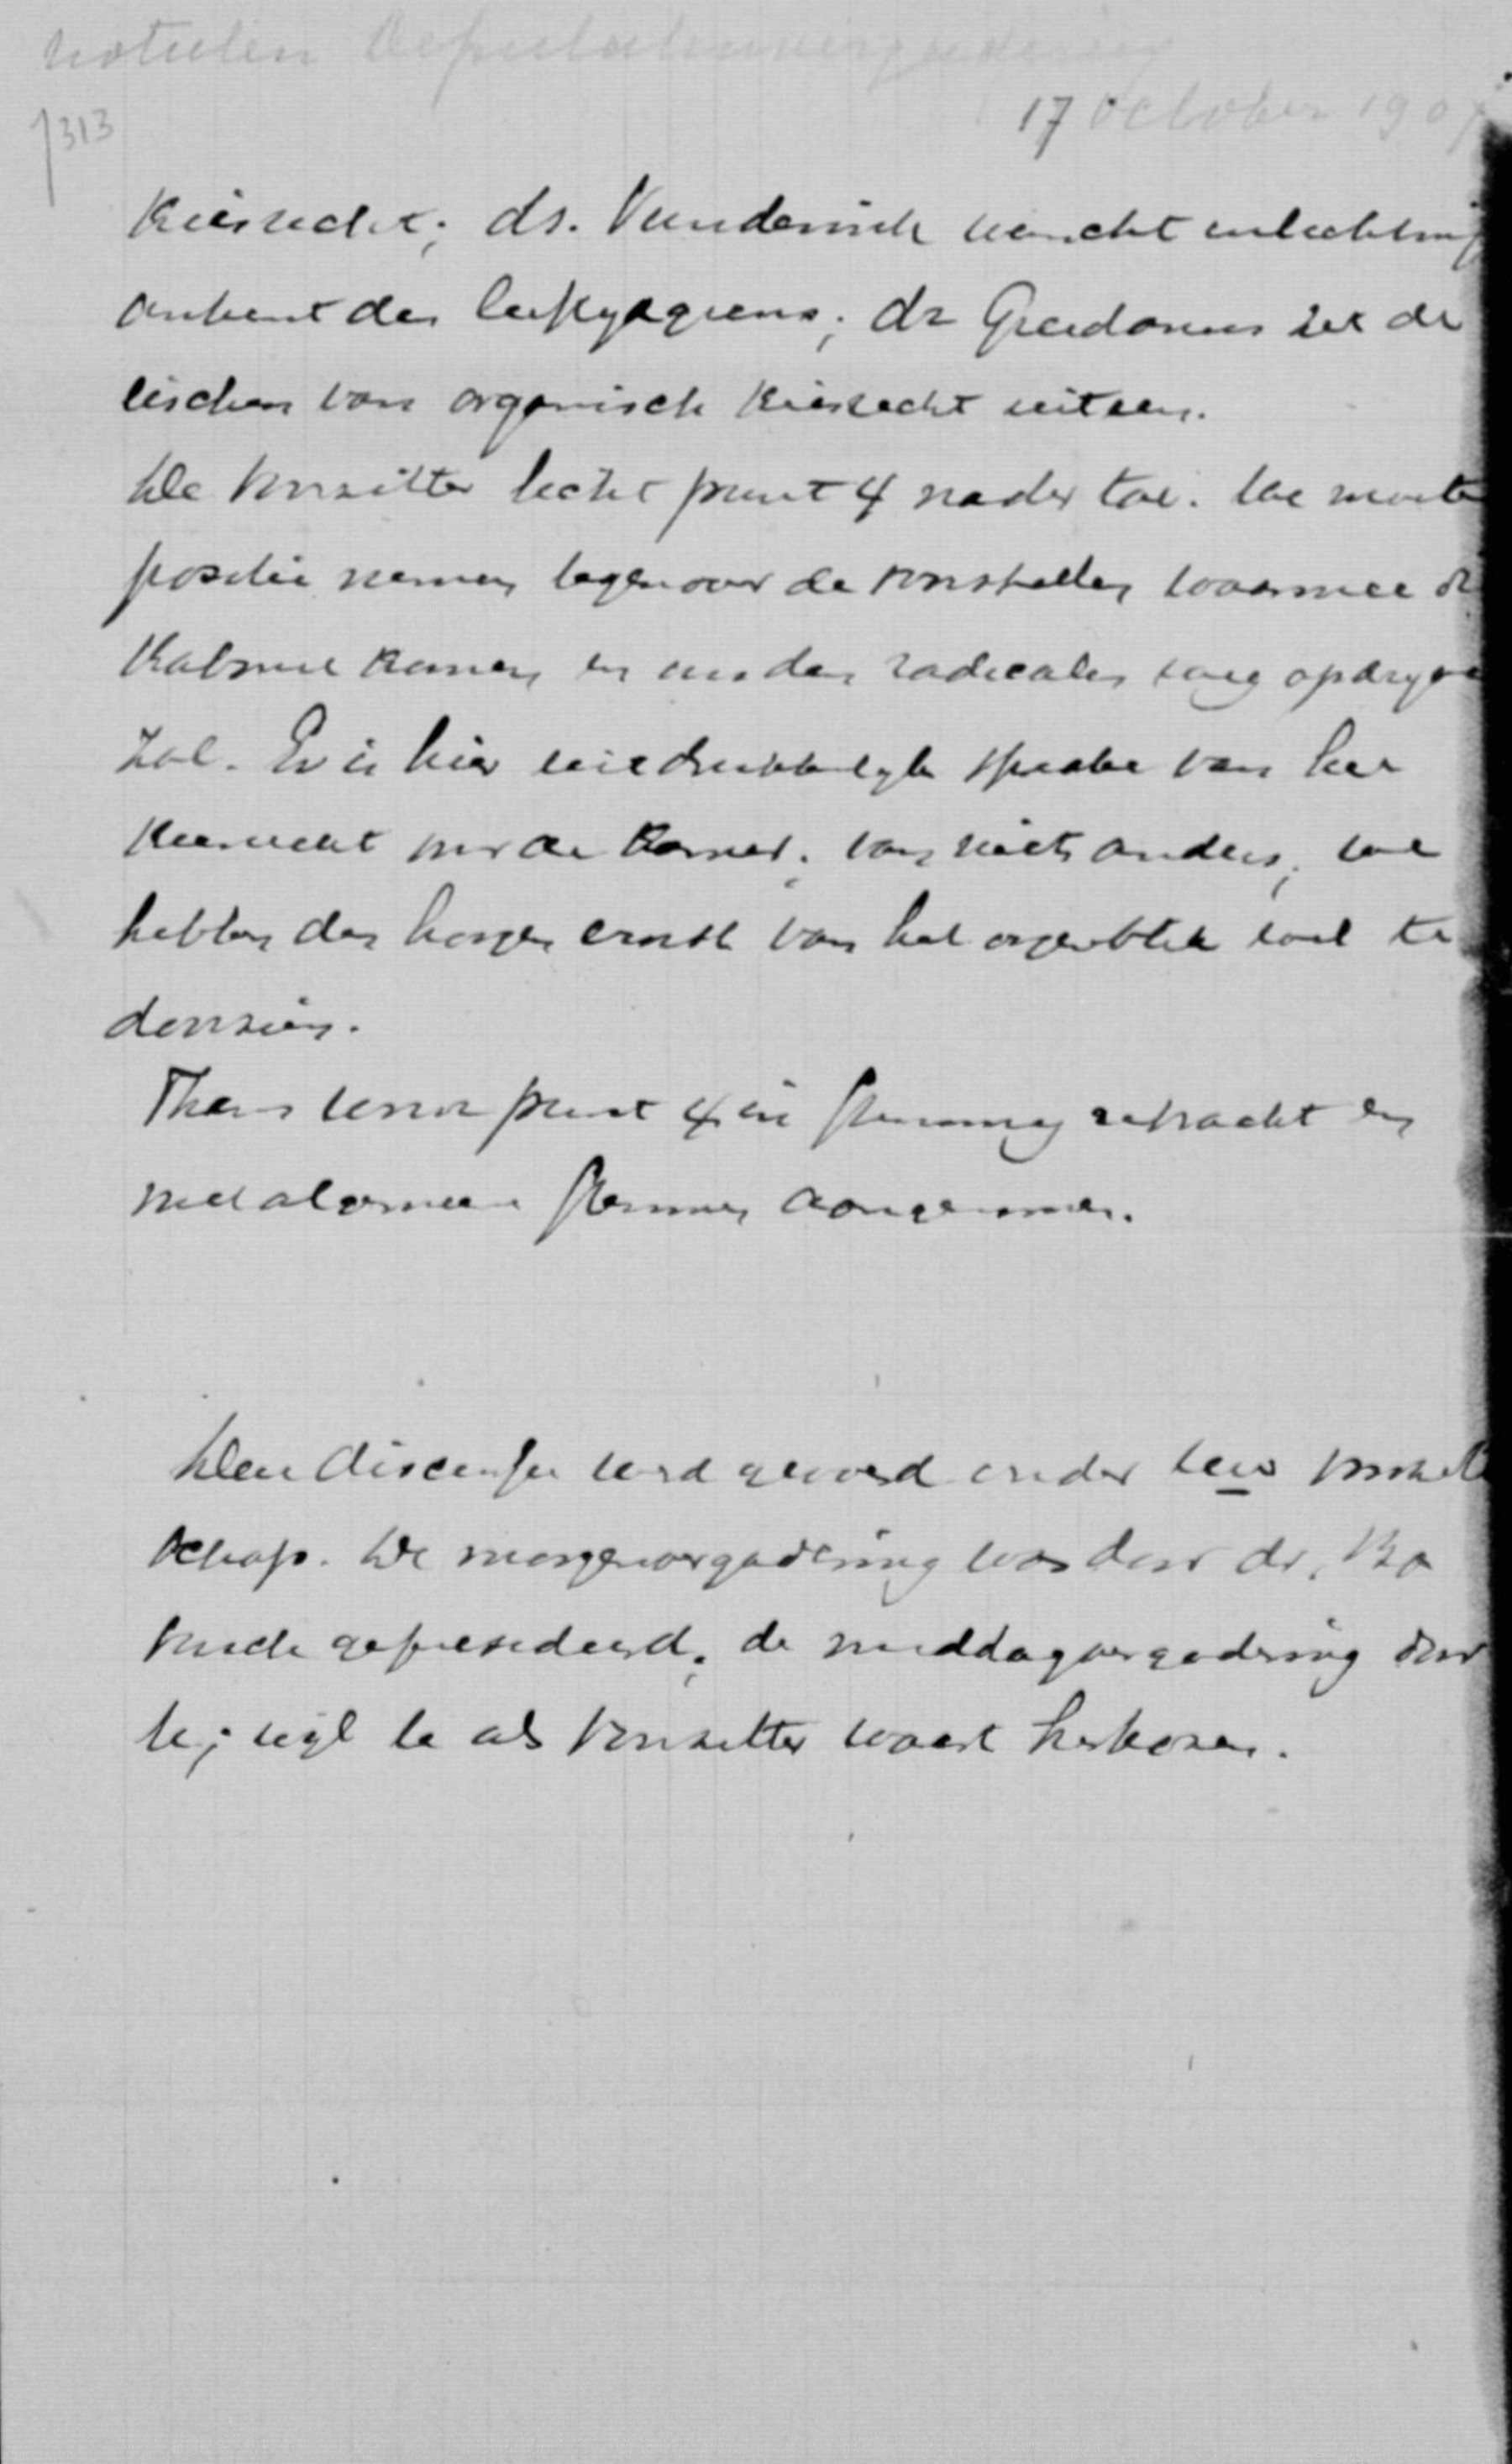 Notulen Deputatenvergadering
17 October 1907
1313
Kiesrecht; ds. wenscht inlichting
omtrent den leeftijdsgrens; dr Greidanus zet de
eischen van organisch kiesrecht uiteen.
De voorzitter licht punt 4 nader toe. We moeten
positie nemen tegenover de voorstellen waarmee
Kabinet komen en ons den radicalen weg opdrijven
zal. Er is hier uitdrukkelijk sprake van het
kiesrecht voor de Kamer, van niets anders; we
hebben den hoogen ernst van het oogenblik wel te
doorzien.
Thans wordt punt 4 in stemming gebracht en
met algemeene stemmen aangenomen.
Deze discussie werd gevoerd onder uw voorzitter
schap. De morgenvergadering was door dr.
gepresideerd; de middagvergadering door
u; wijl u als voorzitter waart herkozen.